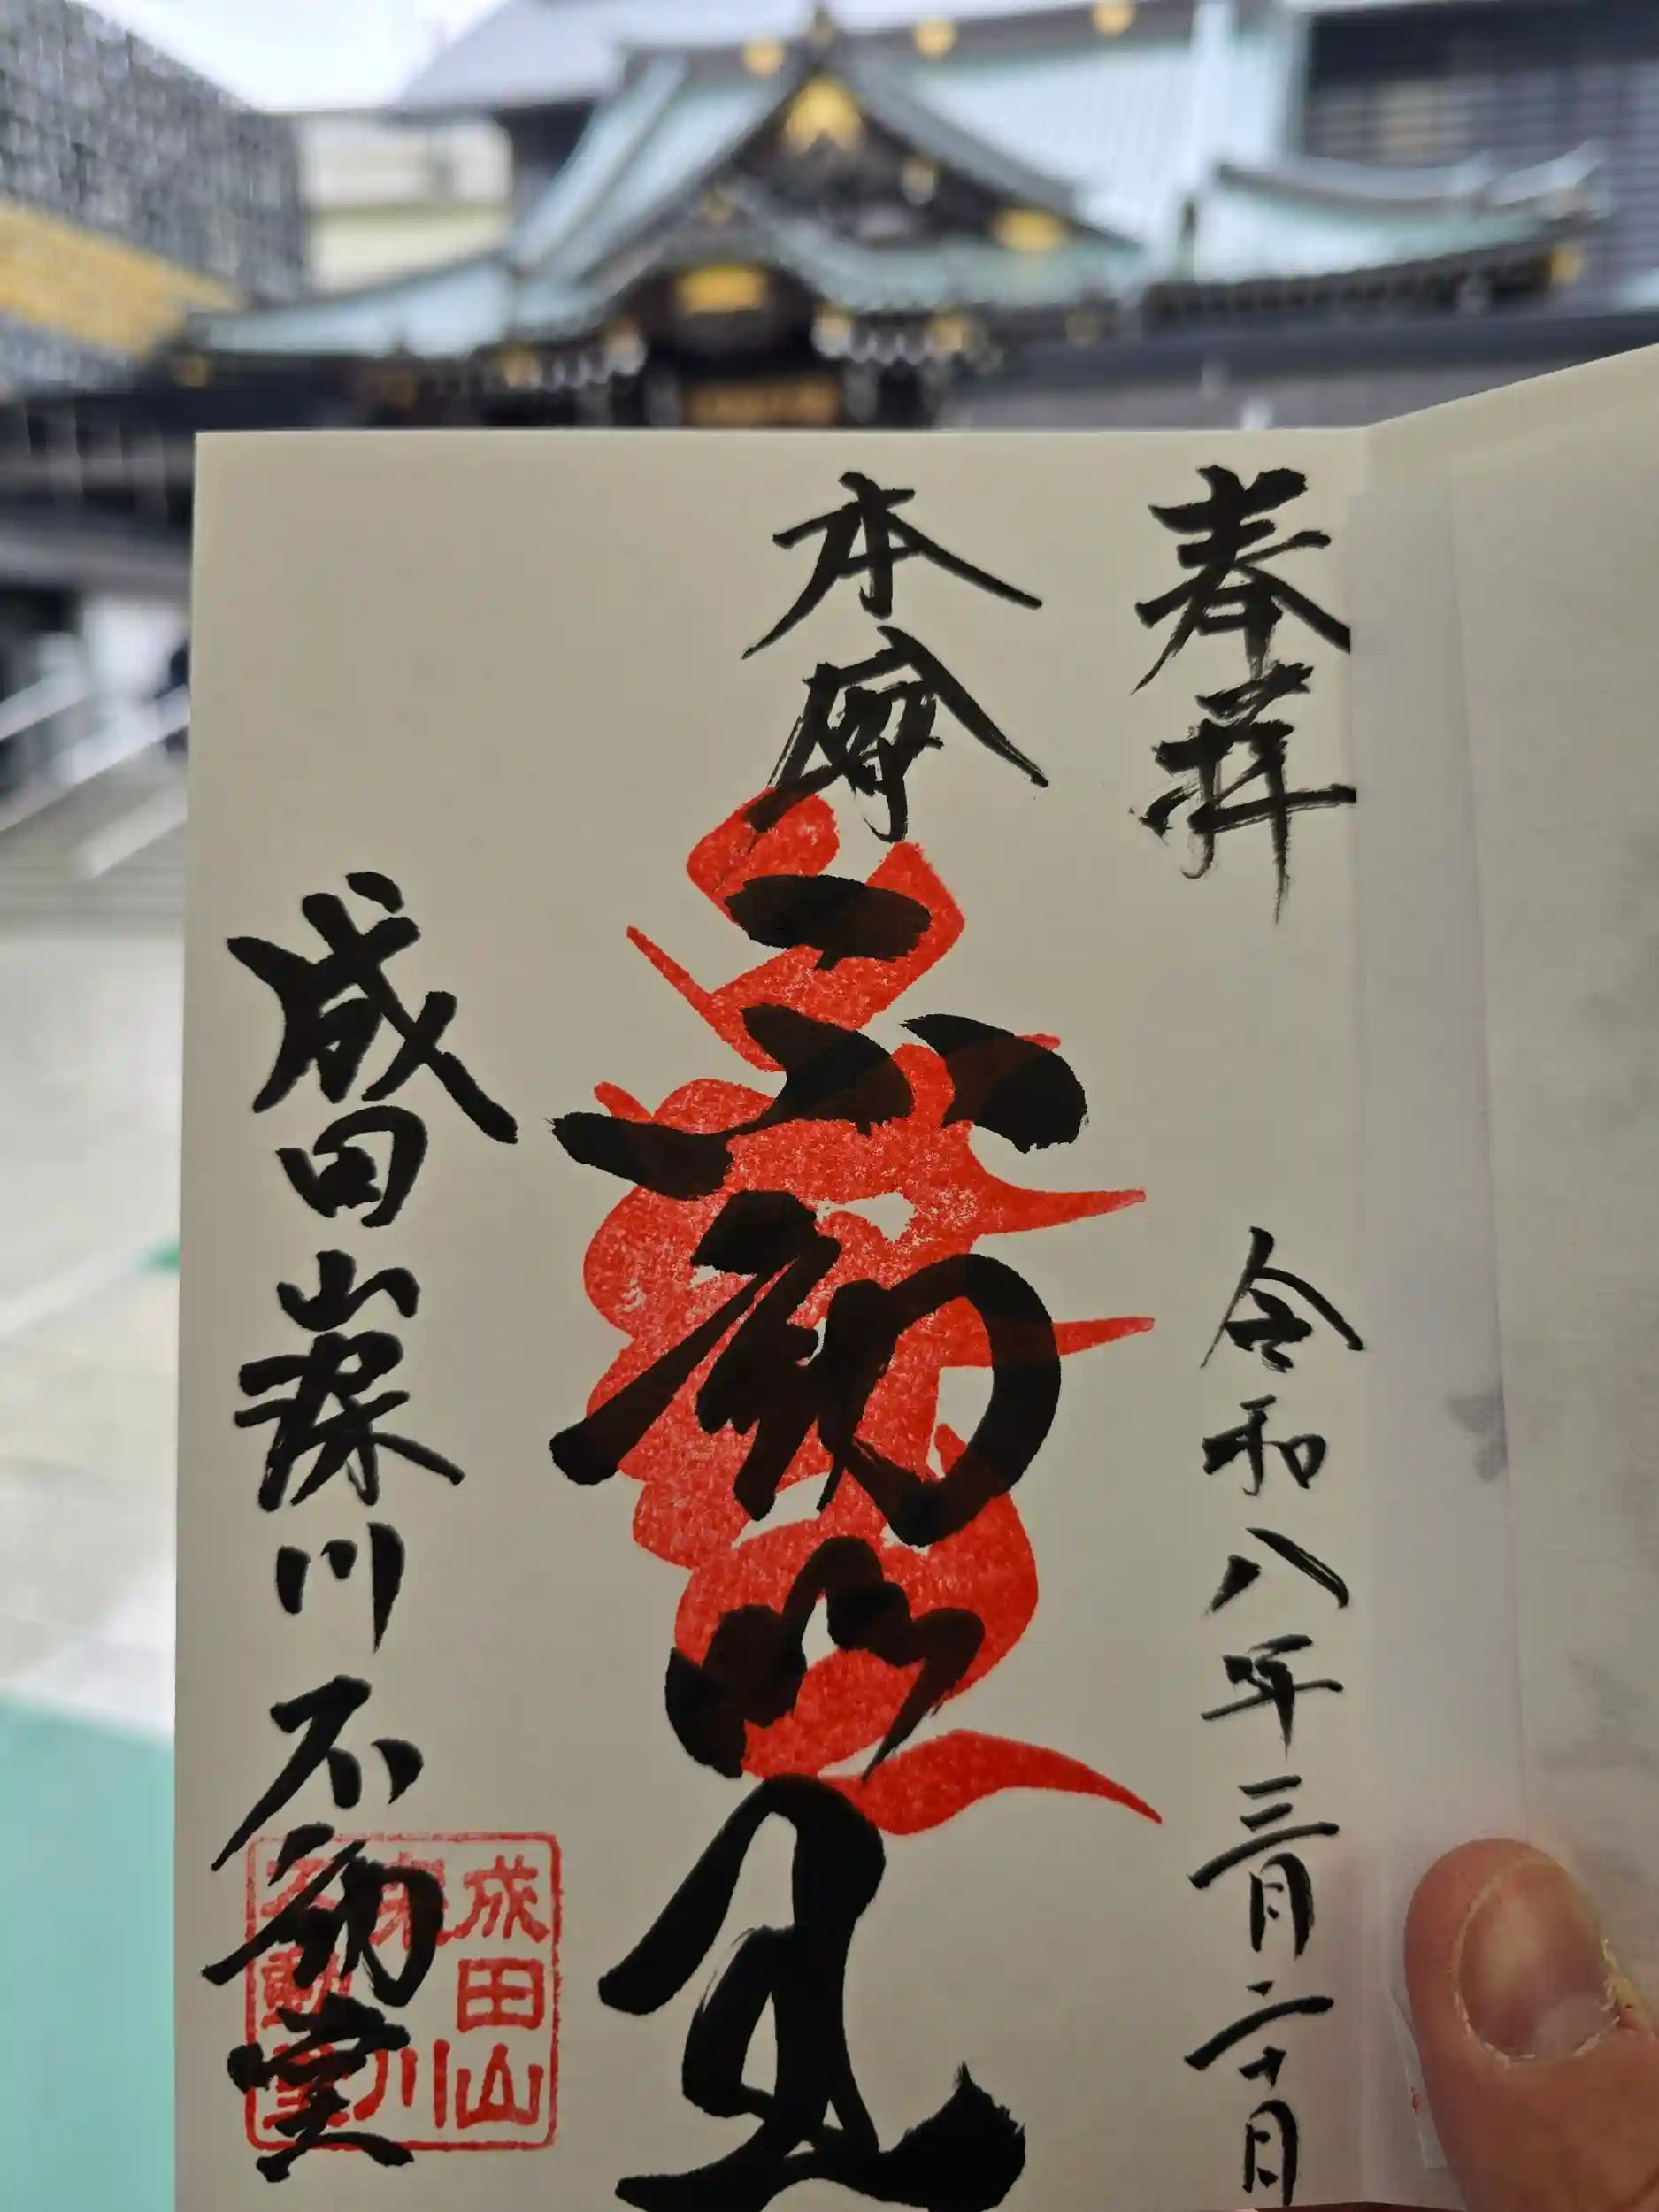 奉拝
令和八年三月二十日
本尊
不動明王
成田山深川不動堂
成田山
深川
不動堂